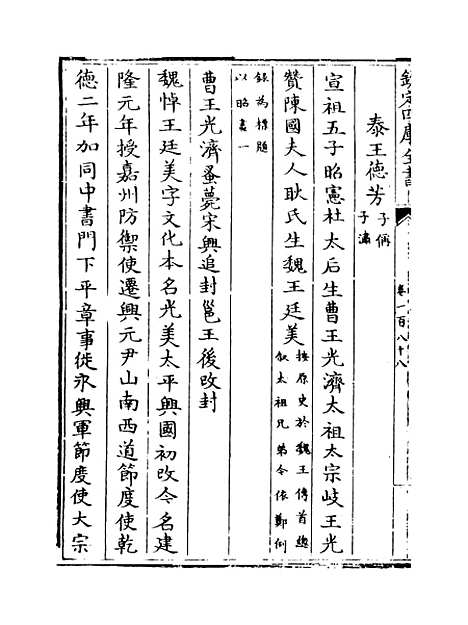 欽定四庫全書
卷一百八十八
泰王德芳
子偁
子潚
宣祖五子昭憲杜太后生曹王光濟太祖太宗岐王光
贊陳國夫人耿氏生魏王廷美
按原史於魏王傳首總
叙太祖兄弟今依鄭例
錄為標題
以昭畫一
曹王光濟蚤薨宋興追封邕王後改封
魏悼王廷美字文化本名光美太平興國初改今名建
隆元年授嘉州防禦使遷興元尹山南西道節度使乾
德二年加同中書門下平章事徙永興軍節度使大宗